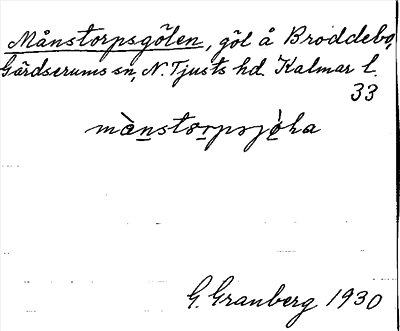 Månstorpsgölen, göl å Broddebo,
Gärdserums sn, N. Tjusts hd. Kalmar l.
33
mànstorpsjö̀ka
G. Granberg 1930